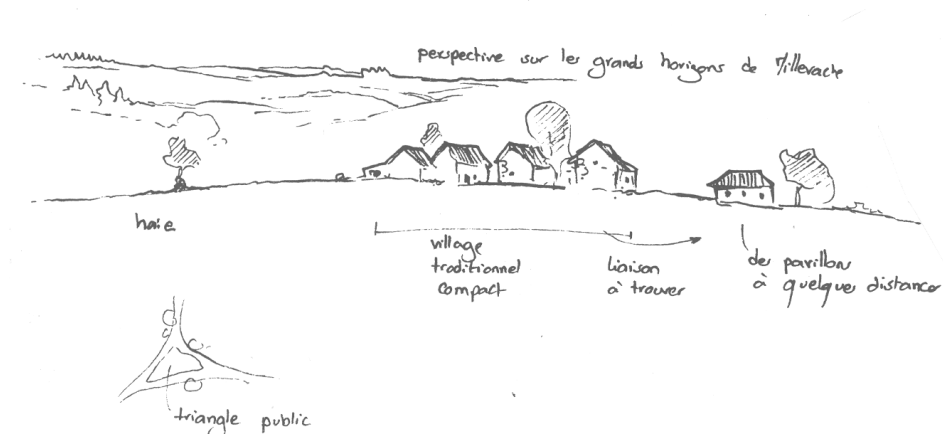 perspective sur les grands horizons de Millevache
haie
village
traditionnel
compact
liaison
à trouver
des pavillons
à quelque distance
triangle public